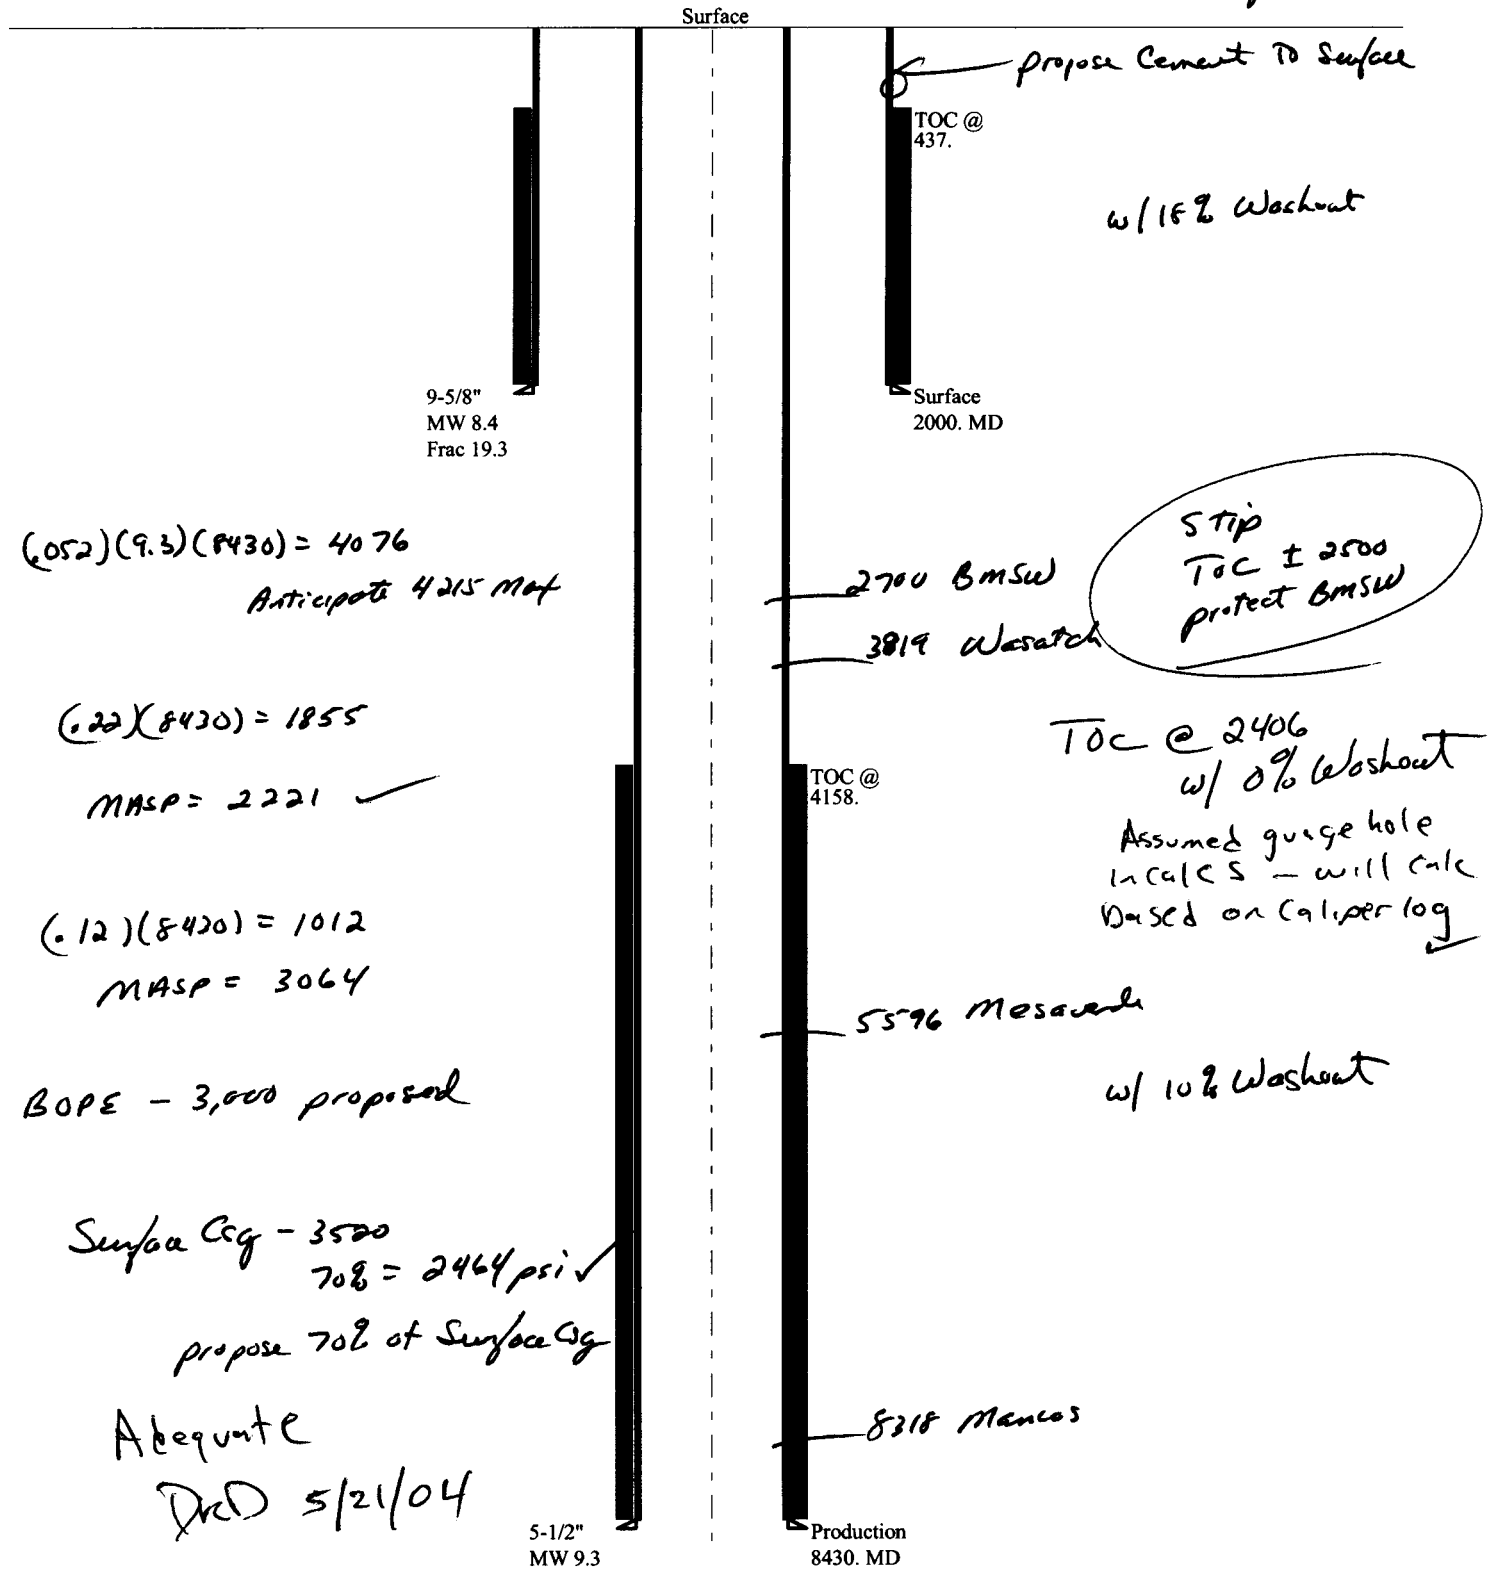 Surface
propose Cement To Surface
TOC @
437.
w/ 18% Washout
9-5/8"
MW 8.4
Frac 19.3
Surface
2000. MD
(.052)(9.3)(8430) = 4076
Anticipate 4215 Max
2700 BMSW
3819 Wasatch
STip
TOC ± 2500
protect BMSW
(.22)(8430) = 1855
MASP = 2221 ✓
TOC @ 2406
w/ 0% Washout
TOC @
4158.
Assumed guage hole
in calcs – will calc
based on Caliper log
✓
(.12)(8430) = 1012
MASP = 3064
5596 Mesaverde
w/ 10% Washout
BOPE – 3,000 proposed
Surface Csg – 3520
70% = 2464 psi ✓
propose 70% of Surface Csg
8318 Mancos
Adequate
DKD 5/21/04
5-1/2"
MW 9.3
Production
8430. MD